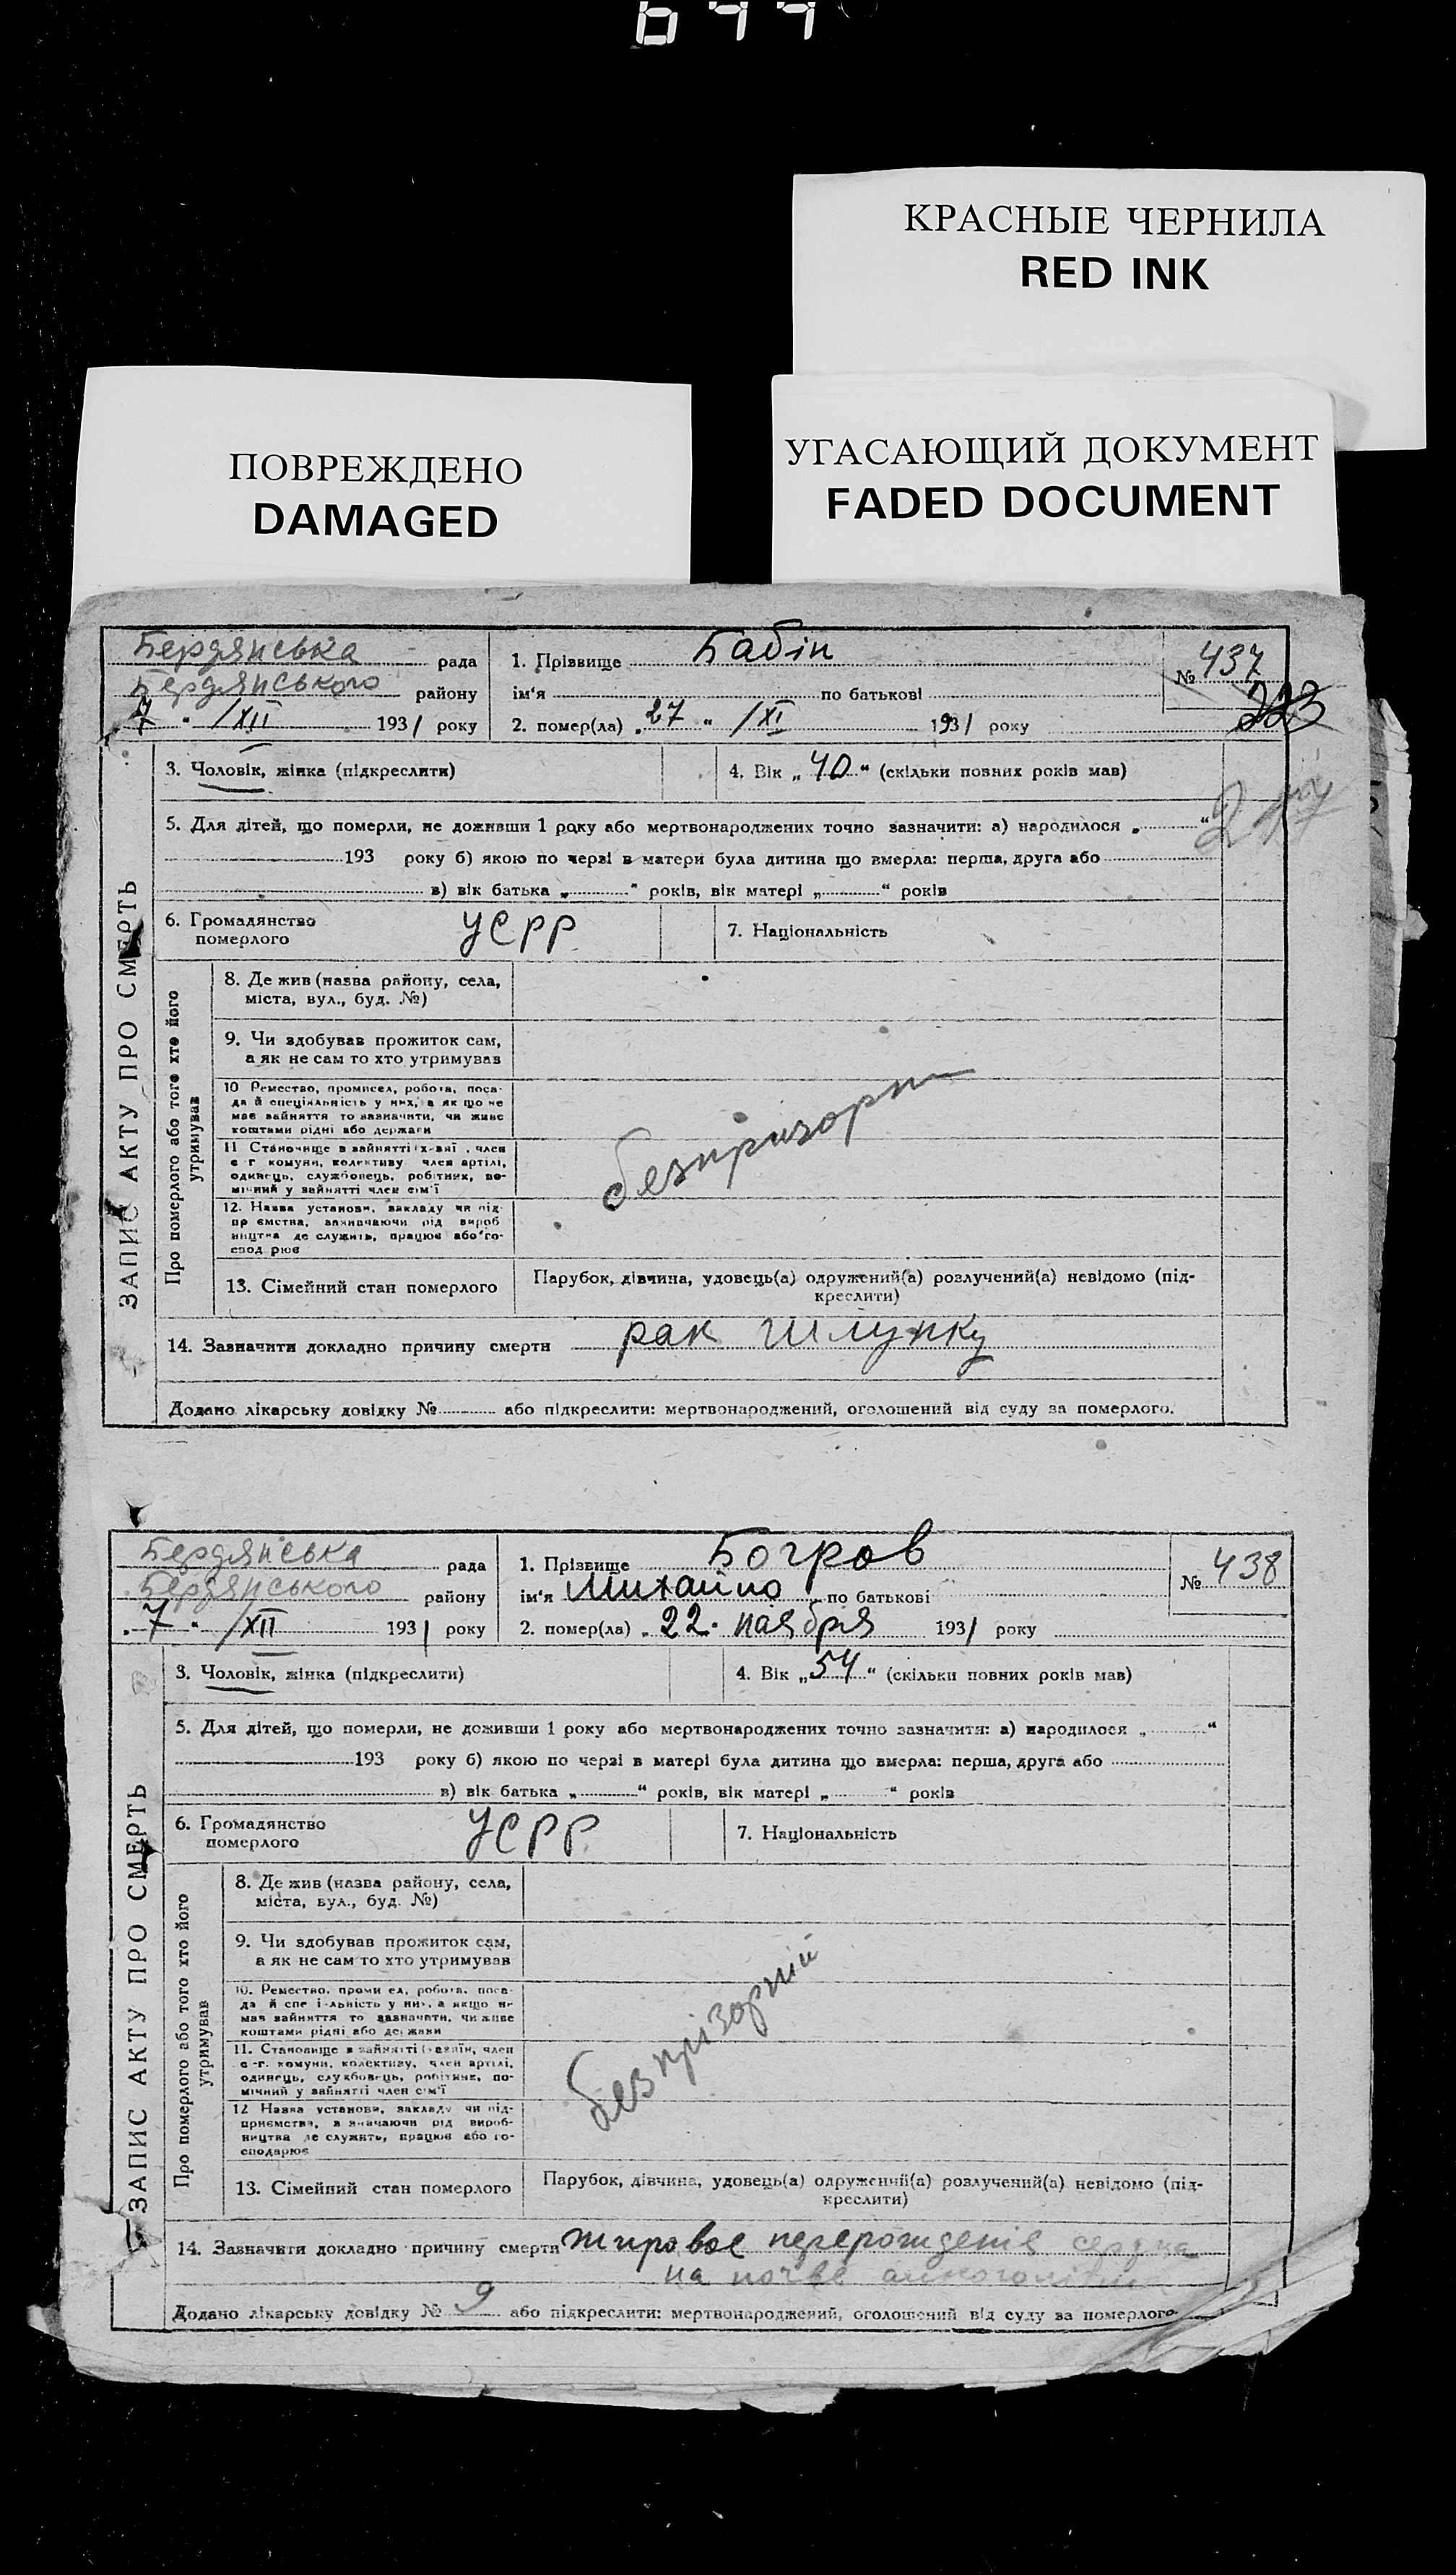 КРАСНЫЕ ЧЕРНИЛА
RED INK
ПОВРЕЖДЕНО
DAMAGED
УГАСАЮЩИЙ ДОКУМЕНТ
FADED DOCUMENT
Бердянська рада
Бердянського району
7 " /XII 1931 року
1. Прізвище Бабін
ім'я по батькові
2. помер(ла) „27" /XI 1931 року
№ 437
223
3. Чоловік, жінка (підкреслити)
4. Вік „40" (скільки повних років мав)
5. Для дітей, що померли, не доживши 1 року або мертвонароджених точно зазначити: а) народилося „ "
193 року б) якою по черзі в матери була дитина що вмерла: перша, друга або
в) вік батька „ " років, вік матері „ " років
6. Громадянство померлого УСРР
7. Національність
ЗАПИС АКТУ ПРО СМЕРТЬ
Про померлого або того хто його утримував
8. Де жив (назва району, села,
міста, вул., буд. №)
9. Чи здобував прожиток сам,
а як не сам то хто утримував
10 Ремество, промисел, робота, поса-
да й спеціяльність у них, а як що не
має зайняття то зазначити, чи живе
коштами рідні або держави
11 Становище в зайнятті член
с г комуни, колективу член артілі,
одинець, службовець, робітник, по-
мічний у зайнятті член сім'ї
12. Назва установи, закладу чи під-
пр ємства, зазначаючи рід вироб
ництва де служить, працює або го-
спод рює
безпризорн
13. Сімейний стан померлого
Парубок, дівчина, удовець(а) одружений(а) розлучений(а) невідомо (під-
креслити)
14. Зазначити докладно причину смерти рак шлунку
Додано лікарську довідку № або підкреслити: мертвонароджений, оголошений від суду за померлого.
Бердянська рада
Бердянського району
„7" /XII 1931 року
1. Прізвище Богров
ім'я Михайло по батькові
2. помер(ла) „22" ноября 1931 року
№ 438
3. Чоловік, жінка (підкреслити)
4. Вік „54" (скільки повних років мав)
5. Для дітей, що померли, не доживши 1 року або мертвонароджених точно зазначити: а) народилося „ "
193 року б) якою по черзі в матері була дитина що вмерла: перша, друга або
в) вік батька „ " років, вік матері „ " років
6. Громадянство померлого УСРР
7. Національність
ЗАПИС АКТУ ПРО СМЕРТЬ
Про померлого або того хто його утримував
8. Де жив (назва району, села,
міста, вул., буд. №)
9. Чи здобував прожиток сам,
а як не сам то хто утримував
10. Ремество, роботa, поса-
да й у них, а якщо не
має зайняття то зазначити, чи живе
коштами рідні або держави
11. Становище в зайнятті член
с-г. комуни, колективу, член артілі,
одинець, службовець, робітник, по-
мічний у зайнятті член сім'ї
12 Назва установи, закладу чи під-
приємства, зазначаючи рід вироб-
ництва де служить, працює або го-
сподарює
безпрізорний
13. Сімейний стан померлого
Парубок, дівчина, удовець(а) одружений(а) розлучений(а) невідомо (під-
креслити)
14. Зазначити докладно причину смерти жировое перерождение сердца
на почве
Додано лікарську довідку № 9 або підкреслити: мертвонароджений, оголошений від суду за померлого